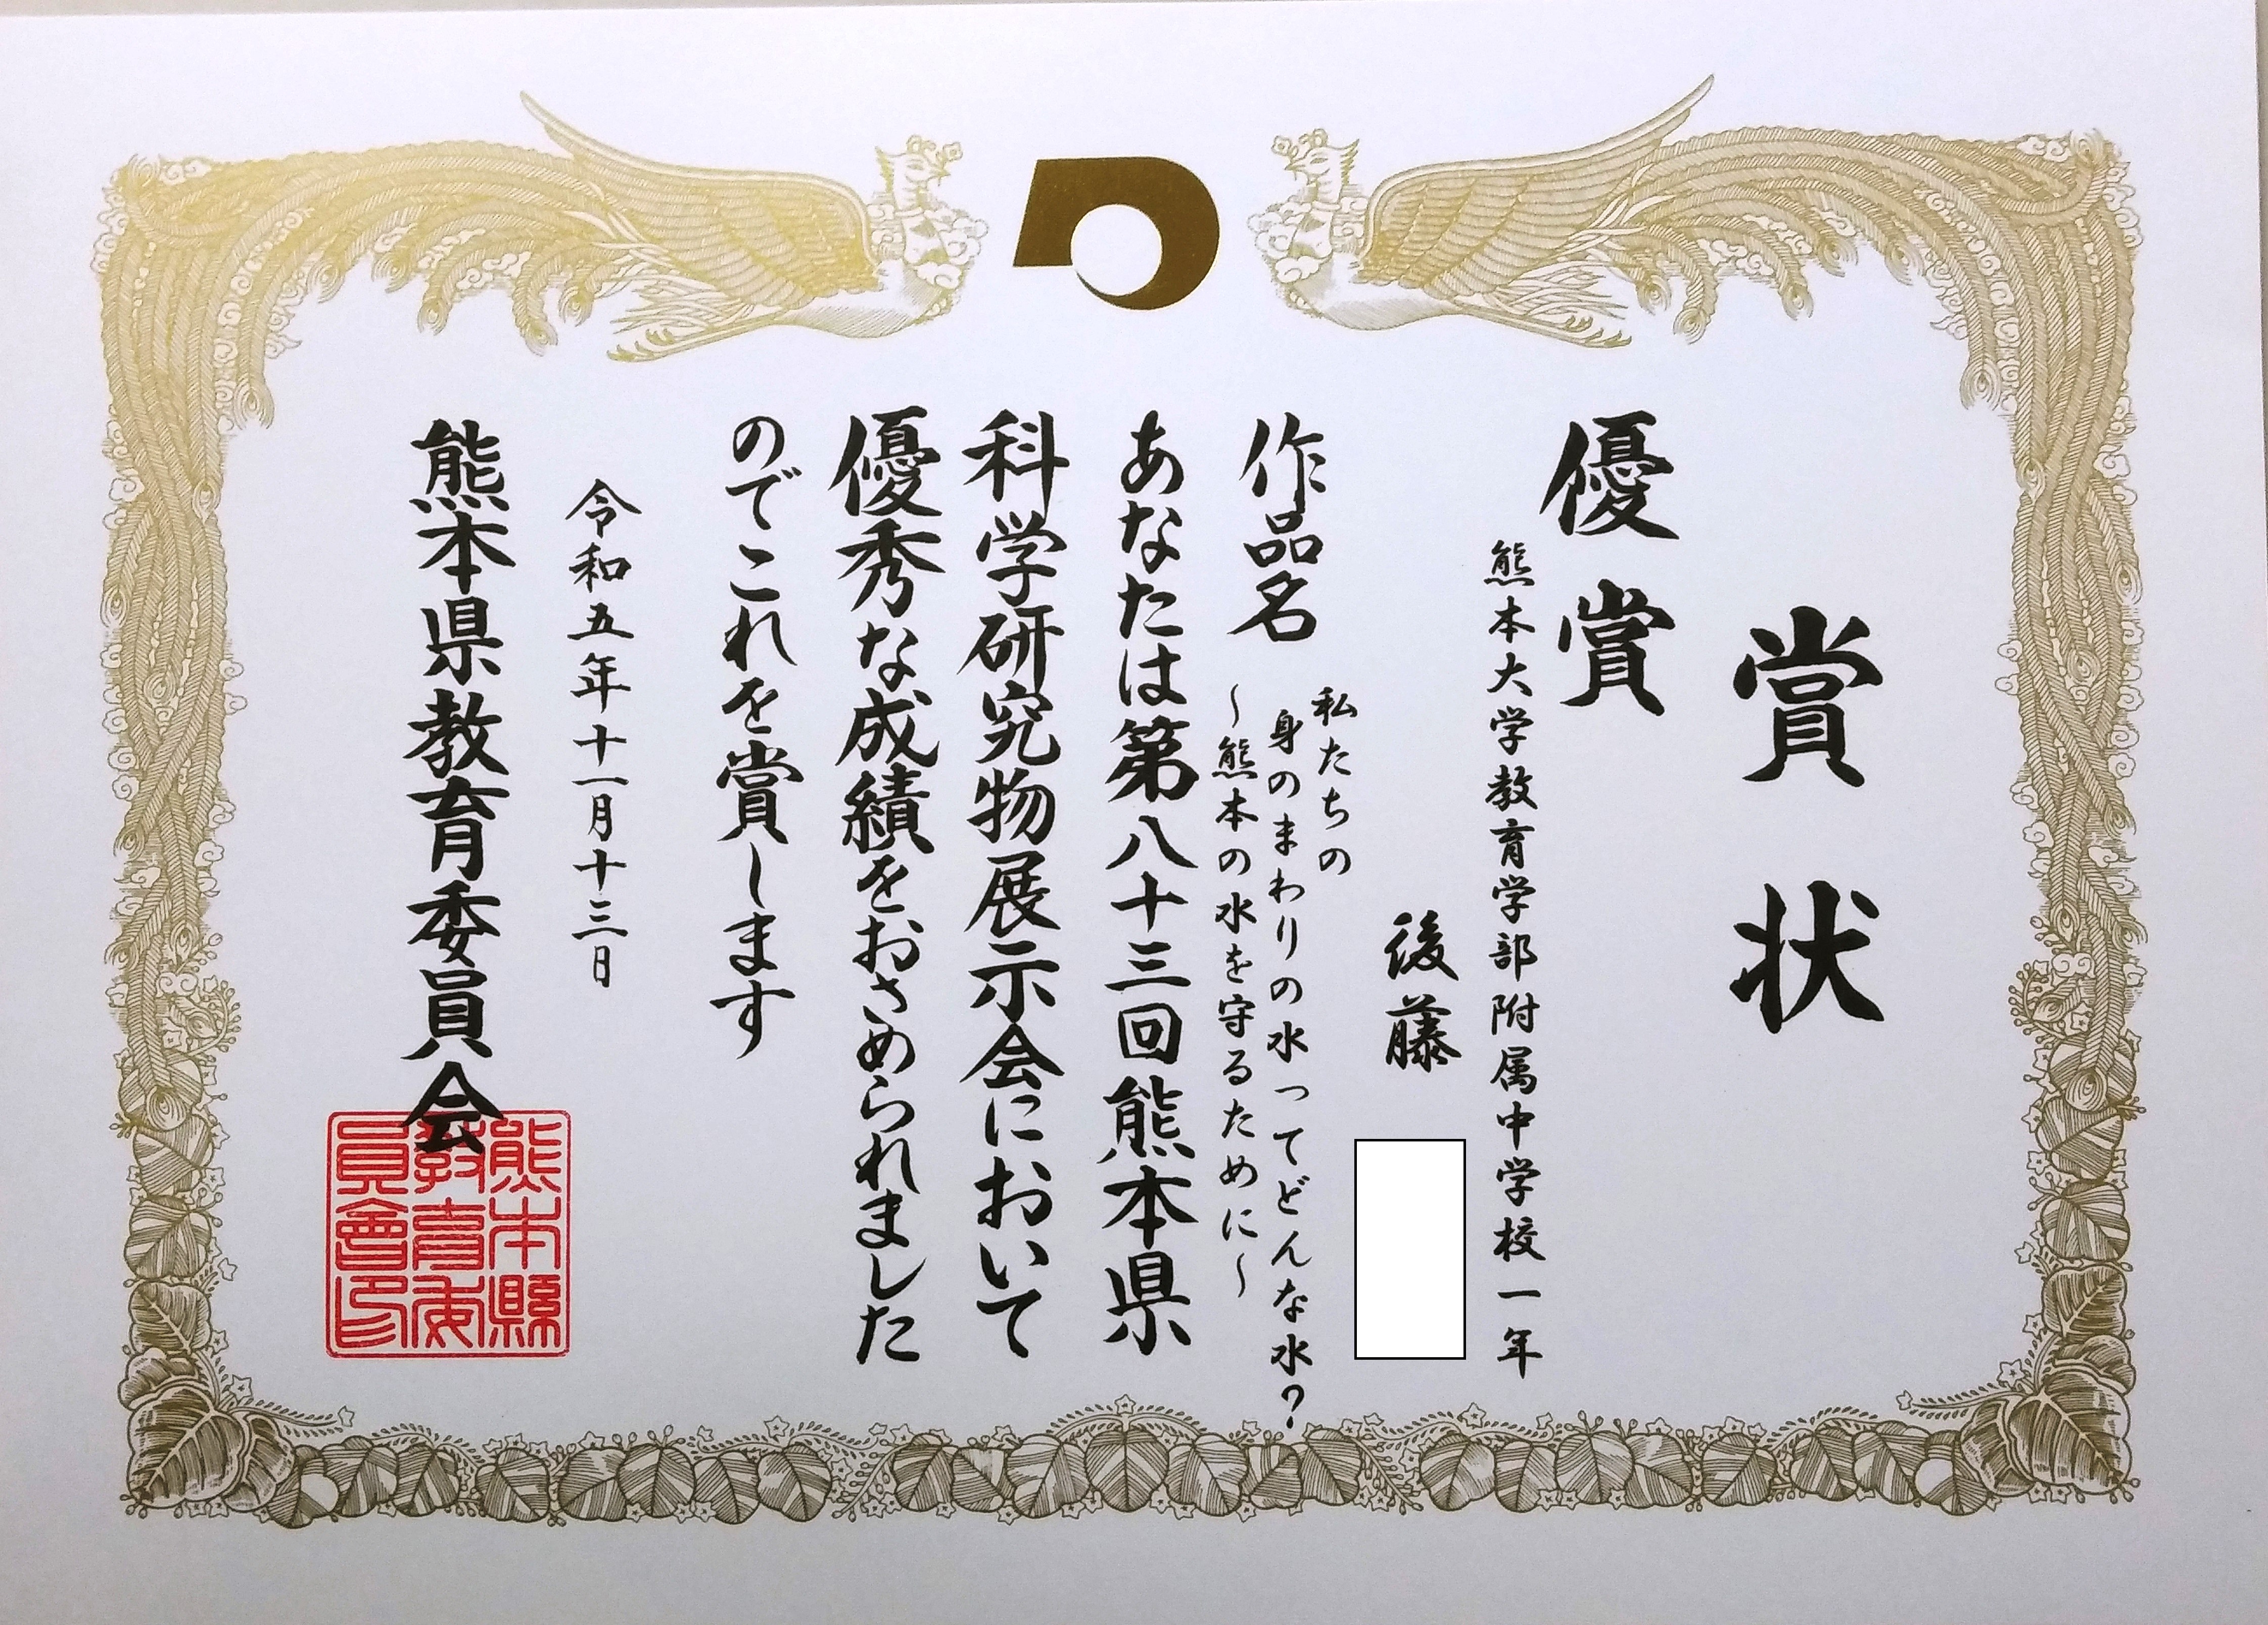 賞状
優賞
熊本大学教育学部附属中学校一年
後藤
作品名
私たちの
身のまわりの水ってどんな水?
～熊本の水を守るために～
あなたは第八十三回熊本県
科学研究物展示会において
優秀な成績をおさめられました
のでこれを賞します
令和五年十一月十三日
熊本県教育委員会
熊本縣
教育委
員會印